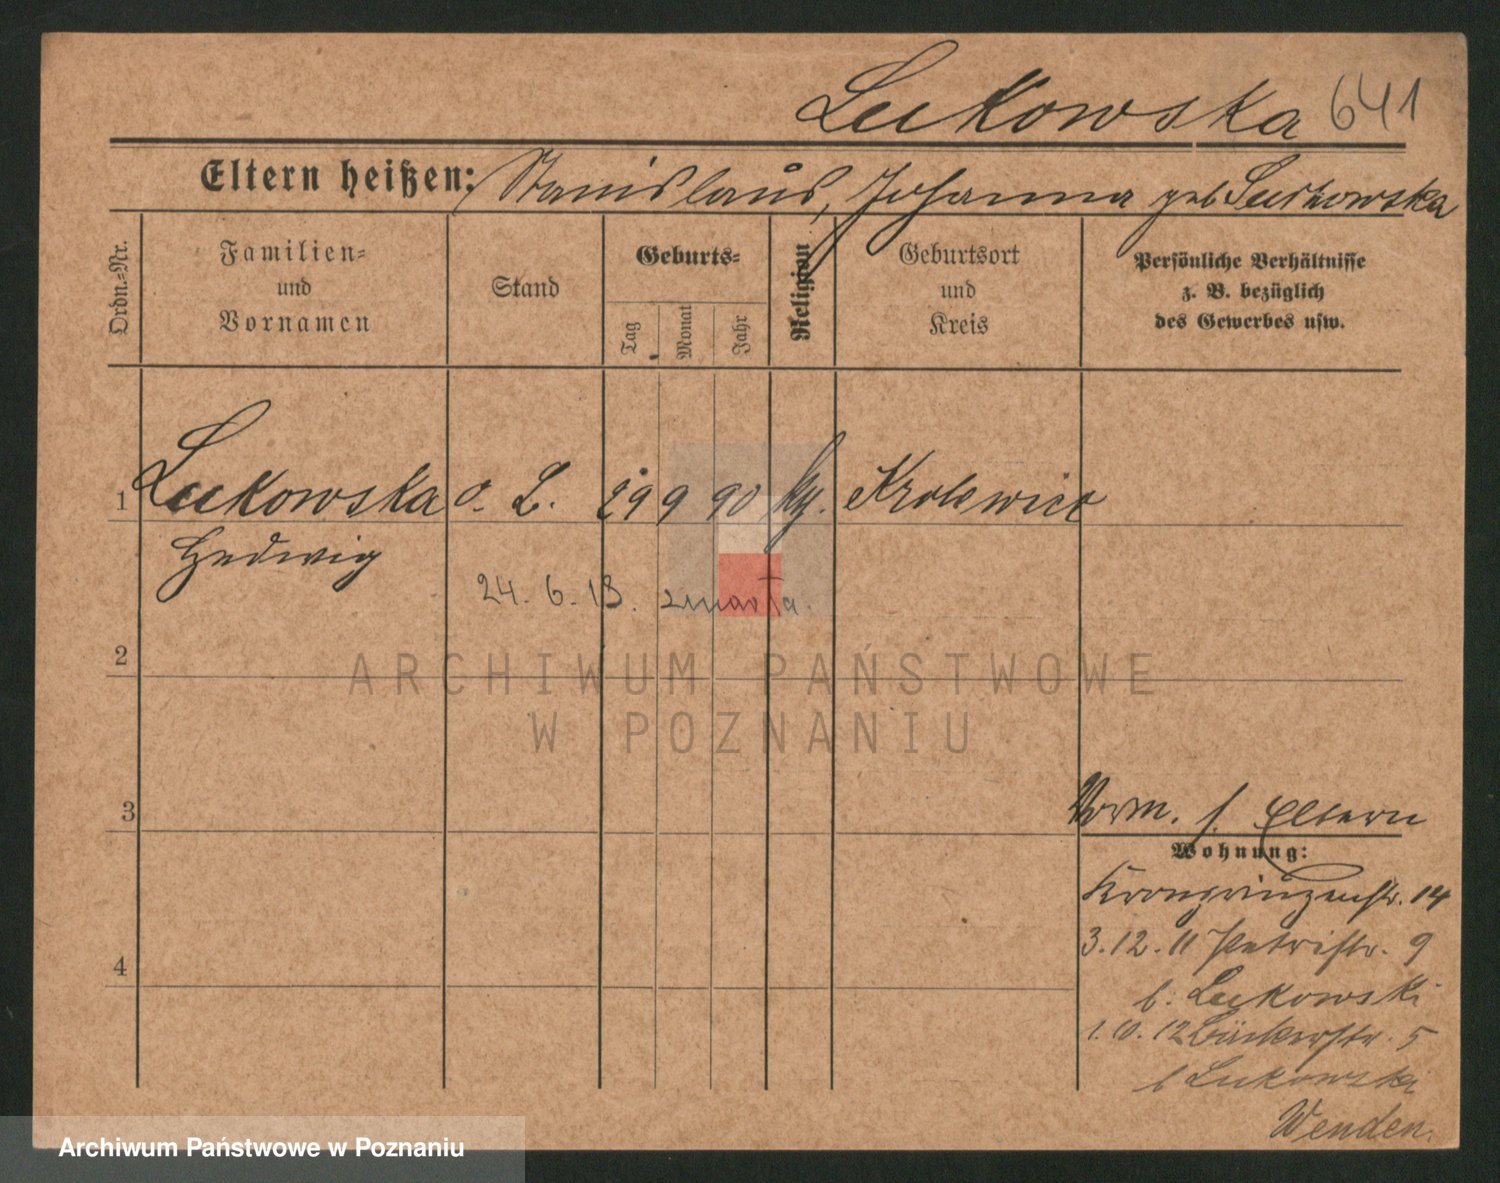 Lukowska 641
Eltern heißen: Stanislaus, Johanna geb
Ordn.-Nr.
Familien-
und
Vornamen
Stand
Geburts-
Tag
Monat
Jahr
Religion
Geburtsort
und
Kreis
Persönliche Verhältnisse
z. B. bezüglich
des Gewerbes usw.
1 Lukowska o. L. 29 9 90 Krolewicz
Hedwig
24. 6. 13. zmarła.
2
ARCHIWUM PAŃSTWOWE
W POZNANIU
3
Vorm. s. Eltern
Wohnung:
Kronprinzenstr. 14
3. 12. 11 Petristr. 9
b. Lukowski
4
1. 10. 12 Bäckerstr. 5
b Lukowski
Wenden.
Archiwum Państwowe w Poznaniu